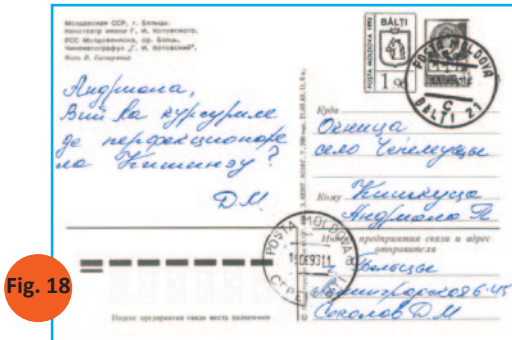 Молдавская ССР, г. Бельцы.
Кинотеатр имени Г. И. Котовского.
РСС Молдовеняскэ, ор. Бэлць.
Чинематографул „Г. И. Котовский“.
Андриана,
Вий ла курсуриле
де перфекционаре
ла Кишинэу?
Д.М.
POȘTA MOLDOVA 1993
BĂLȚI
1.90
POȘTA MOLDOVA
C
BĂLȚI 21
Куда
Окница
село
Кому
Андриана
Индекс предприятия связи и адрес
отправителя
6-45
Соколов Д.М
POȘTA MOLDOVA
BĂLȚI
Индекс предприятия связи места назначения
Fig. 18